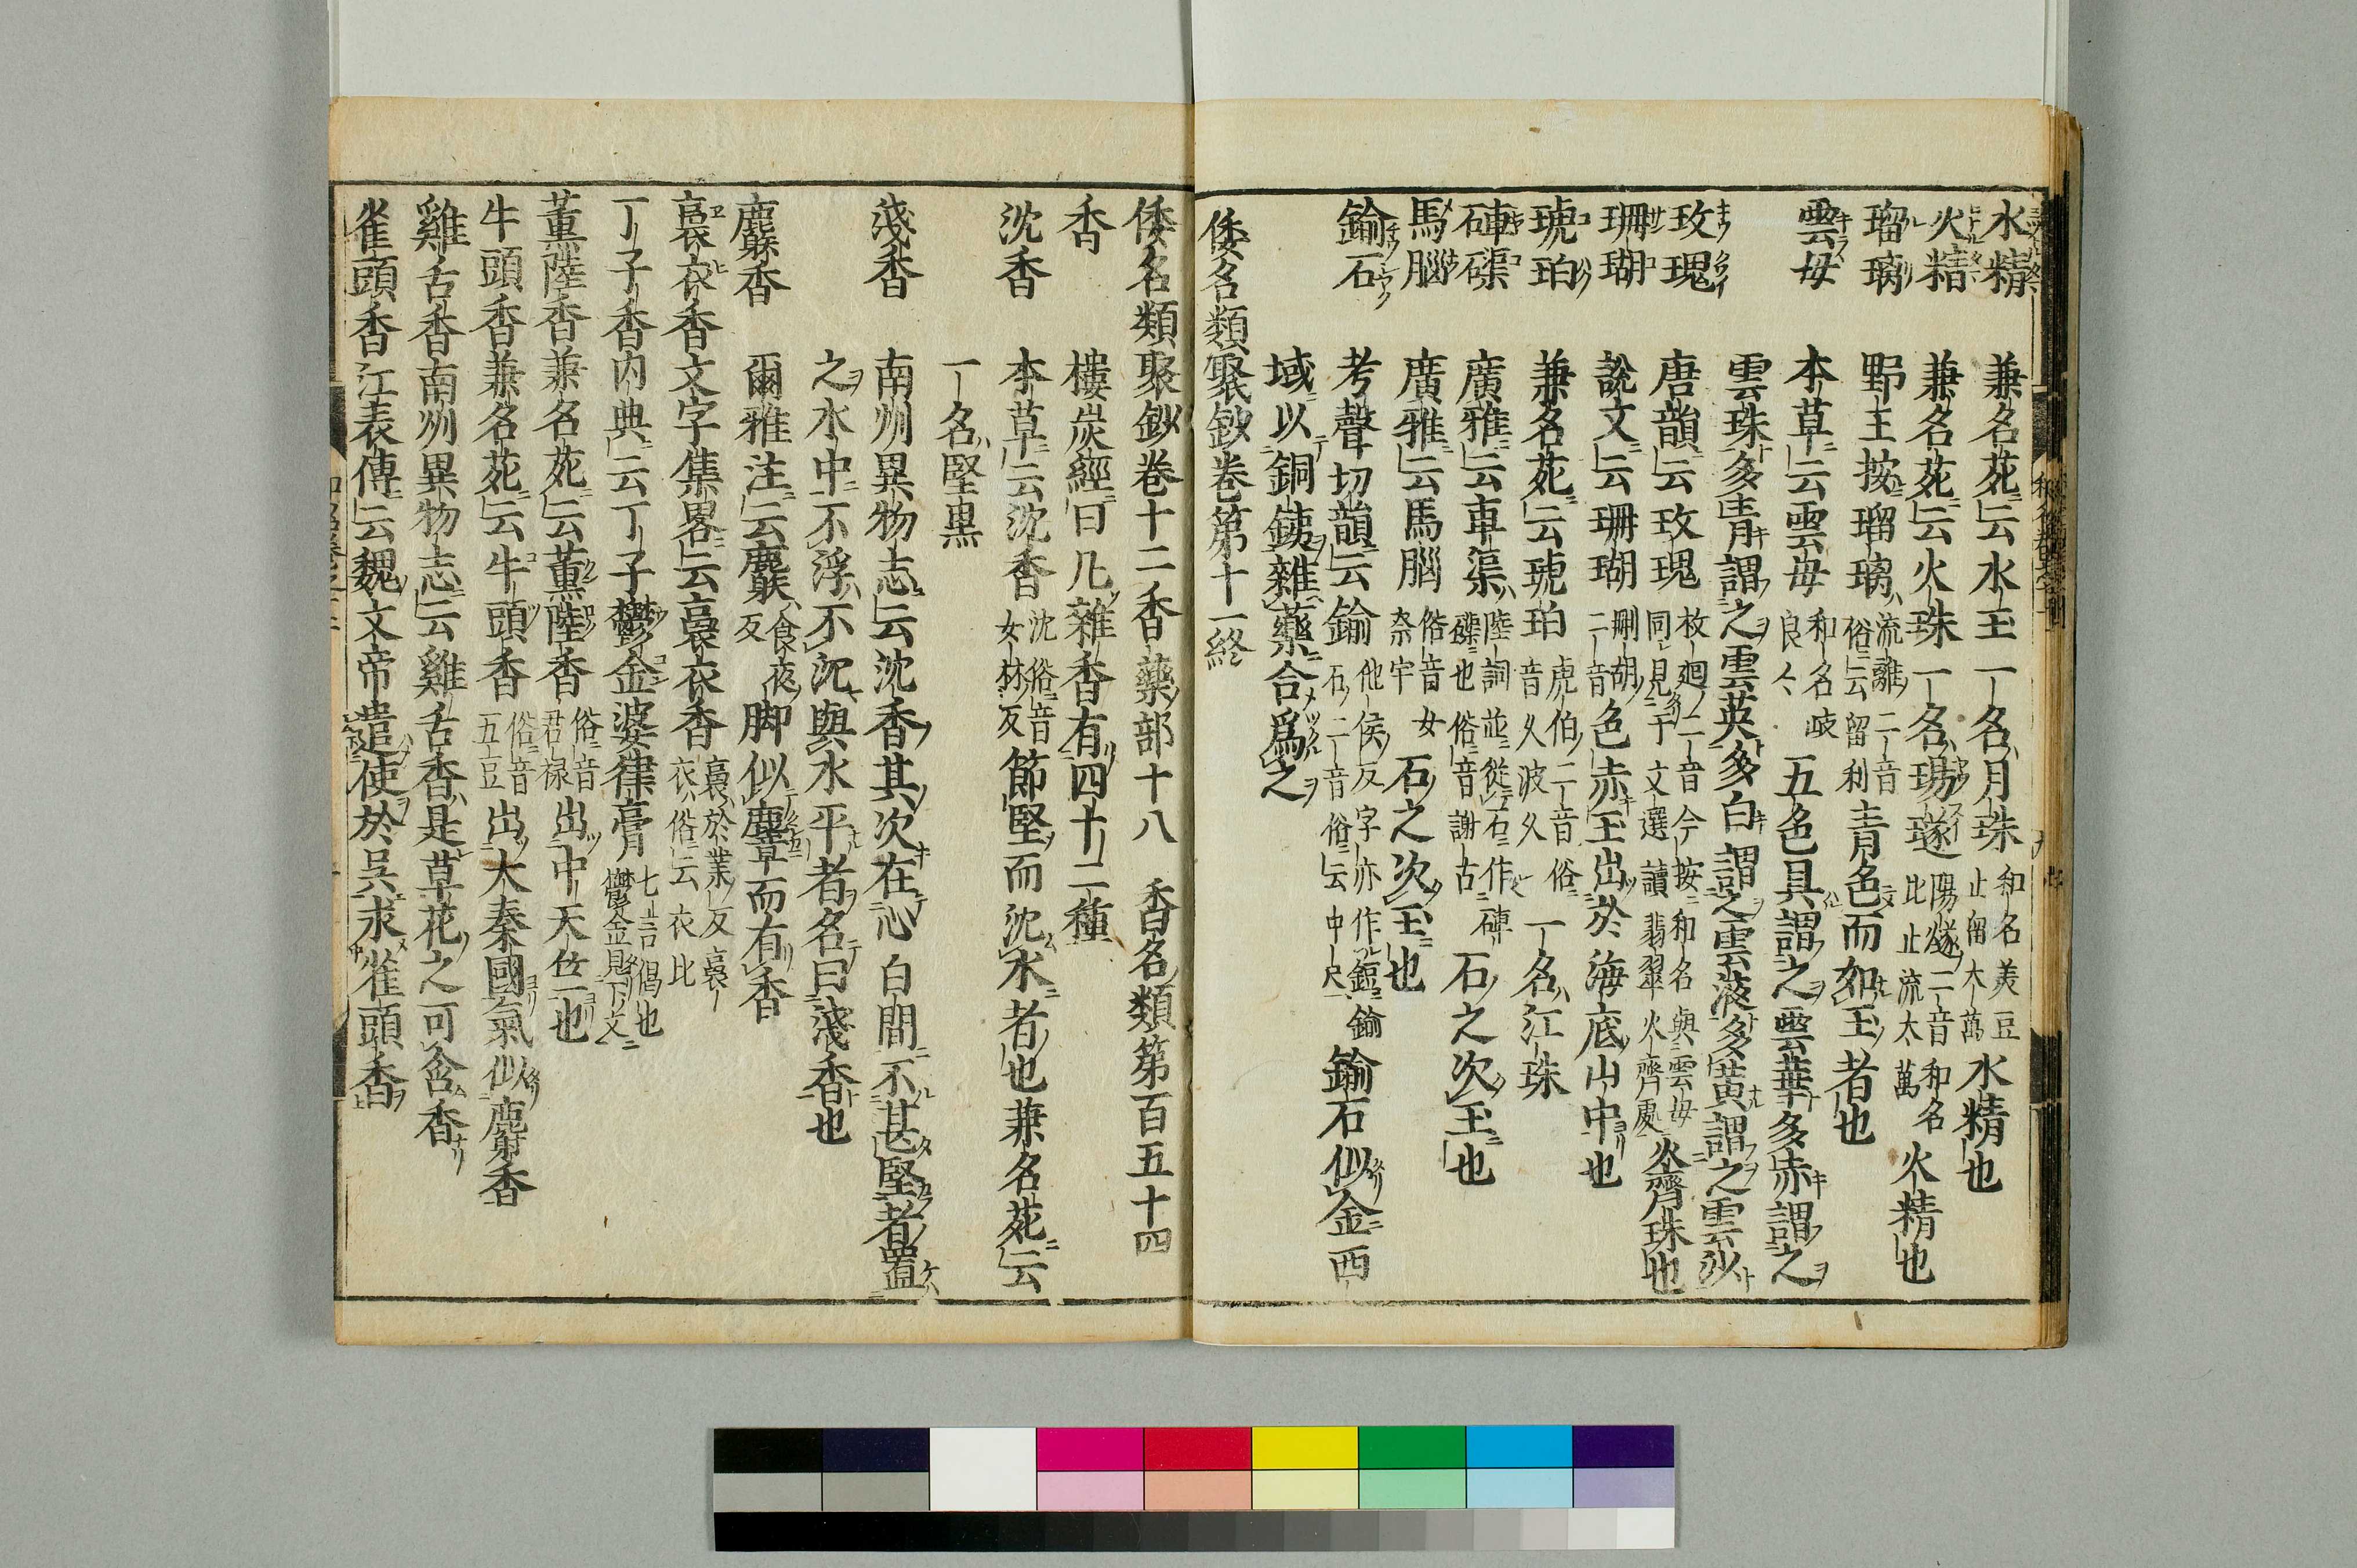 水精 兼名苑云水玉一名月珠 和名美豆止留太萬 水精也
火精 兼名苑云火珠一名瑒璲 陽燧二音和名比止流太萬 火精也
瑠璃 野王按瑠璃 流離二音俗云留利 青色而如玉者也
雲母 本草云雲母 和名岐良々 五色具謂之雲華多赤謂之
雲珠多青謂之雲英多白謂之雲液多黄謂之雲沙
玫瑰 唐韻云玫瑰 枚廻二音今按和名與雲母同見于文選讀翡翠火齊處 火齊珠也
珊瑚 說文云珊瑚 刪胡二音 色赤玉出於海底山中也
琥珀 兼名苑云琥珀 虎伯二音俗音久波久 一名江珠
硨磲 廣雅云車渠 陸詞並從石作硨磲也俗音謝古 石之次玉也
馬腦 廣雅云馬腦 俗音女奈宇 石之次玉也
鍮石 考聲切韻云鍮 他侯反字亦作鋀鍮石二音俗云中尺 鍮石似金西
域以銅鐵雜藥合爲之
倭名類聚鈔卷第十一終
倭名類聚鈔卷十二香藥部十八 香名類第百五十四
香 樓炭經曰凡雜香有四十二種
沈香 本草云沈香 沈俗音女林反 節堅而沈水者也兼名苑云
一名堅黒
淺香 南州異物志云沈香其次在心白間不甚堅者置
之水中不浮不沉與水平者名曰淺香也
麝香 爾雅注云麝 食夜反 脚似麞而有香
裛衣香 文字集畧云裛衣香 裛於業反裛衣俗云衣比
丁子香 内典云丁子欝金婆律膏 七言偈也欝金見下文
薫陸香 兼名苑云薫陸香 俗音君禄 出中天竺也
牛頭香 兼名苑云牛頭香 俗音五豆 出大秦國氣似麝香
雞舌香 南州異物志云雞舌香是草花之可含香
雀頭香 江表傳云魏文帝遣使於吳求雀頭香